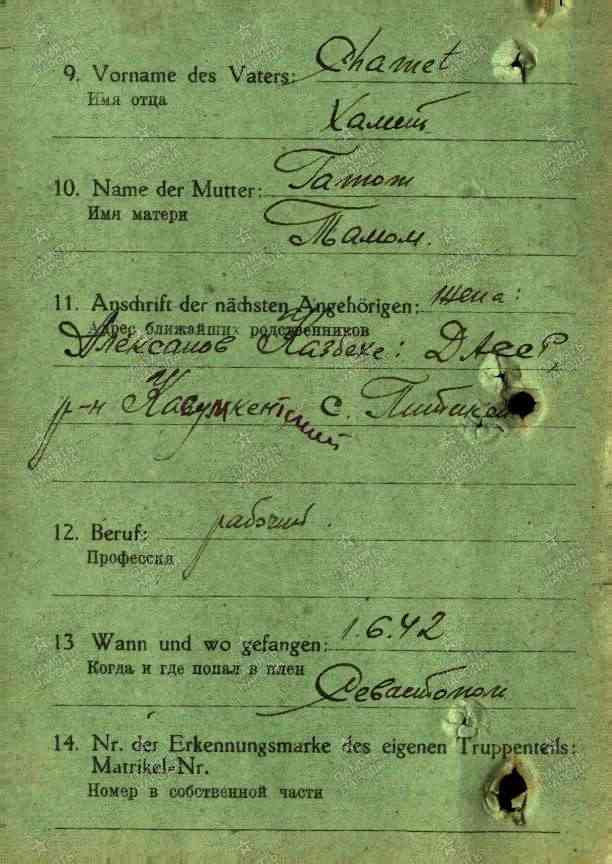 9. Vorname des Vaters: Chamet
Имя отца
Хамет
10. Name der Mutter:
Имя матери
Тамом.
11. Anschrift der nächsten Angehörigen: жена:
Адрес ближайших родственников
Алексанов Казбеке: ДАССР,
р-н Касумкентский с.
12. Beruf: рабочий.
Профессия
13 Wann und wo gefangen: 1.6.42
Когда и где попал в плен
Севастополь
14. Nr. der Erkennungsmarke des eigenen Truppenteils:
Matrikel-Nr.
Номер в собственной части